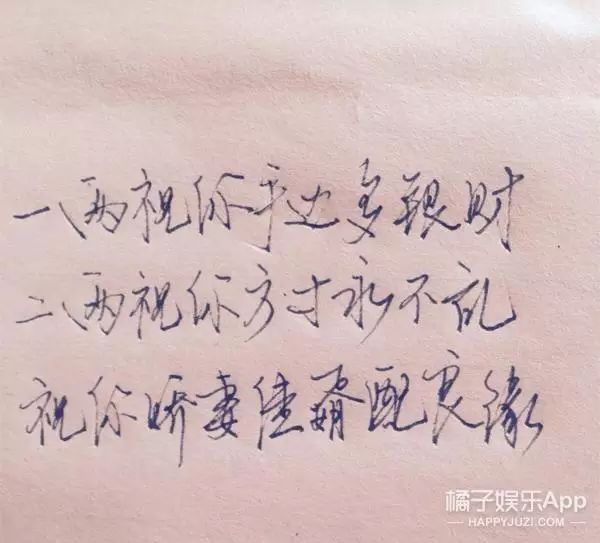 一八两祝你手边多银财
二八两祝你方寸永不乱
祝你娇妻佳婿配良缘
橘子娱乐App
HAPPYJUZI.COM